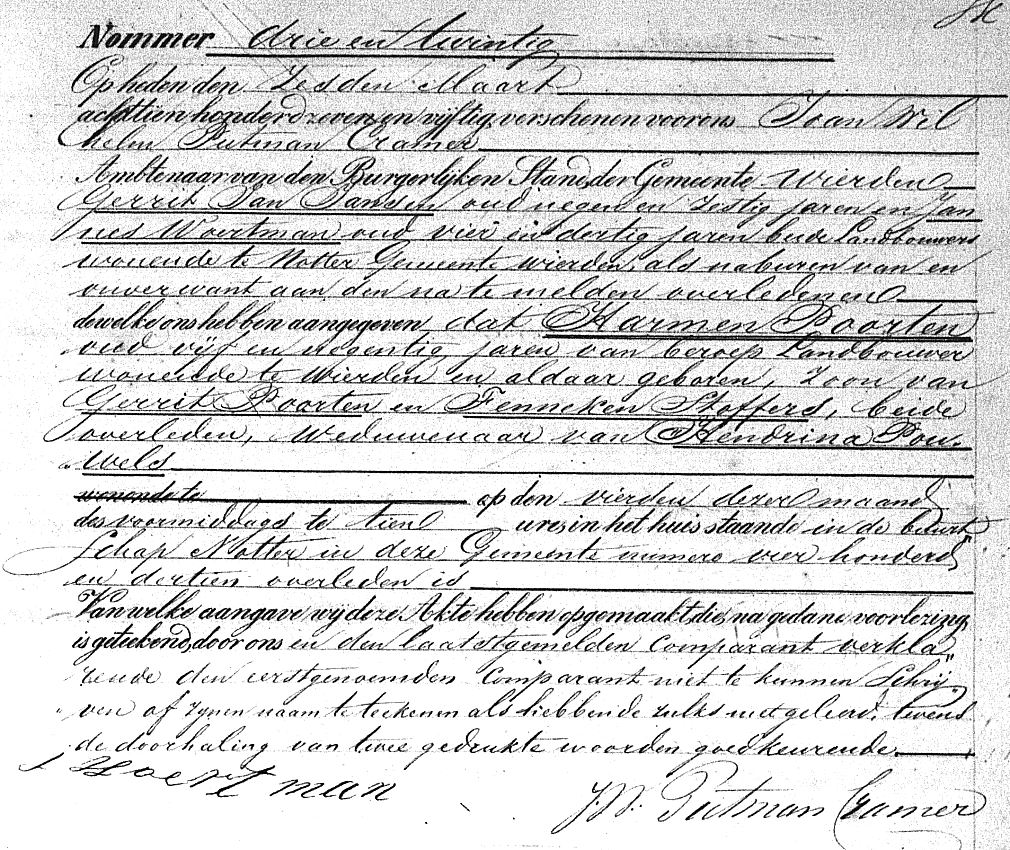 Nommer drie en twintig
Op heden den Zesden Maart
achttien honderd zeven en vijftig, verschenen voor ons Joan Wil
helm Putman Cramer
Ambtenaar van den Burgerlijken Stand, der Gemeente Wierden
Gerrit Jan Jansen oud negen en Zestig jaren en Jan
nes Woertman oud vier en dertig jaren beide Landbouwers
wonende te Notter Gemeente Wierden, als naburen van en
onverwant aan den na te melden overledenen
dewelke ons hebben aangegeven, dat Harmen Poorten
oud vijf en negentig jaren van beroep Landbouwer
wonende te Wierden en aldaar geboren, Zoon van
Gerrit Poorten en Fenneken Stoffers, beide
overleden, Weduwenaar van Hendrina Pou„
wels
wonende te op den vierden dezer maand
des voormiddags te tien ures, in het huis staande in de buurt„
schap Notter in deze Gemeente numero vier honderd
en dertien overleden is
Van welke aangave wij deze Akte hebben opgemaakt, die, na gedane voorlezing,
is geteekend, door ons en den laatstgemelden Comparant verkla„
rende den eerstgenoemden Comparant niet te kunnen Schrij„
ven of Zijnen naam te teekenen als hebbende zulks niet geleerd, tevens
de doorhaling van twee gedrukte woorden goedkeurende.
J Woertman
J.W. Putman Cramer